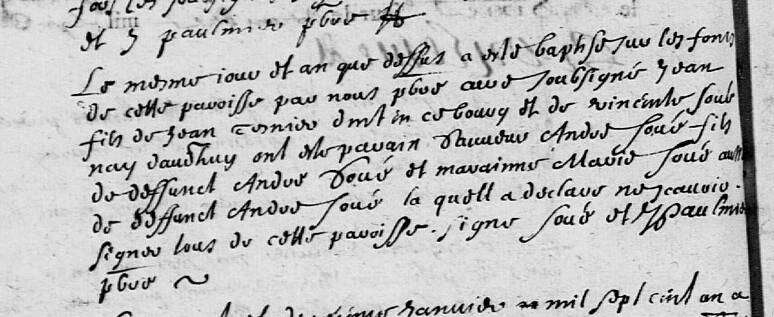 et J paulmier pbre
Le mesme jour et an que dessus a esté baptisé sur les fonts
de cette paroisse par nous pbre curé soubsigné Jean
fils de Jean Tesnier dmt in ce bourg et de vincente soué
nay daujhuy ont esté parain Sauveur André soué fils
de deffunct André Soué et marainne Marie soué aussy
de deffunct André soué la quell a declaré ne scavoir
signer tous de cette paroisse. signe soué et J paulmier
pbre
janvier mil sept cent un a